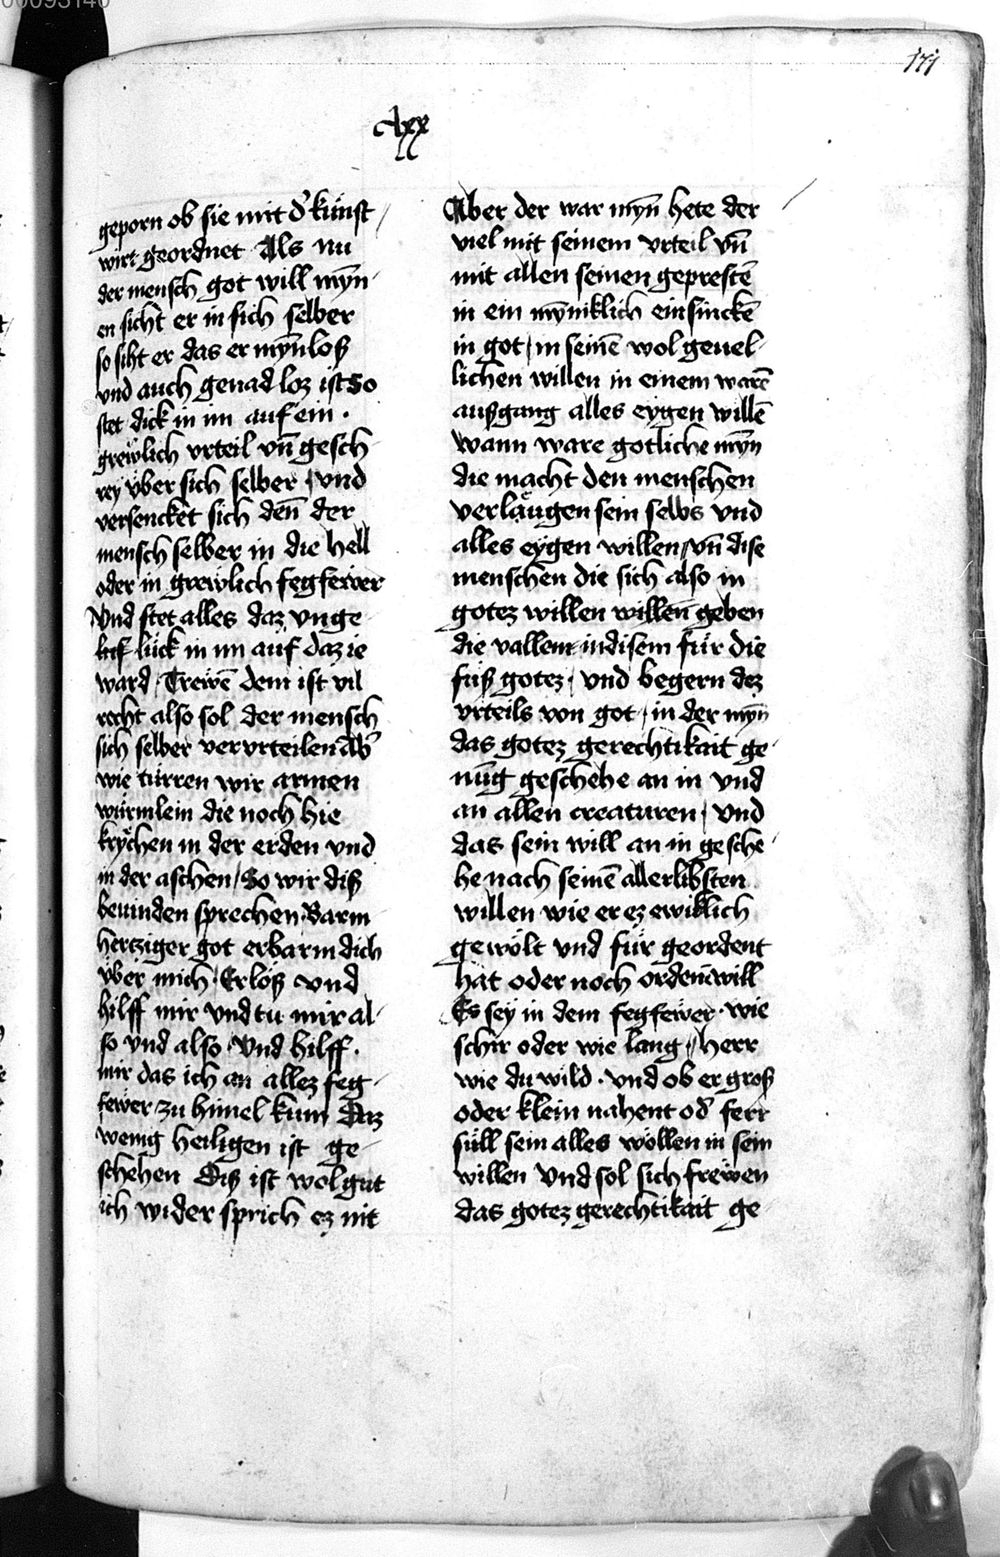 00093140
171
geporn ob sie mit d̕ künst
wirt geordnet Als nu
der mensch got will mȳn
en sicht er in sich selber
so siht er das er mȳnloß
vnd auch genad loz ist So
stet dick in im auf ein ·
grewlich vrteil vn̄ gesch
rey vber sich selber / vnd
versencket sich den̄ der
mensch selber in die hell
oder in grewlich fegfewer
Vnd stet alles daz vnge
luck in im auf daz ie
ward / Trewē dem ist vil
recht also sol der mensch
sich selber vervrteilen Ab̕
wie türren wir armen
würmlein die noch hie
krÿchen in der erden vnd
in der aschen / So wir diß
beuinden sprechen · Barm
hertziger got erbarm dich
vber mich / Erloß vnd
hilff mir vnd tu mir al
so vnd also · Vnd hilff ·
mir das ich an allez feg
fewer zu himel kum Daz
wenig heiligen ist ge
schehen Diß ist wol gut
ich wider sprich ez nit
Aber der war mȳn hete der
viel mit seinem vrteil vn̄
mit allen seinen geprestē
in ein mȳniklich einsinckē
in got / in seinē wol geuel
lichen willen in einem warē
außgang alles eygen willē
wann ware gotliche mȳn
die macht den menschen
verlaügen sein selbs vnd
alles eygen willen / vn̄ dise
menschen die sich also in
gotez willen willen geben
die vallent in disem für die
füß gotez / vnd begern dez
vrteils von got / in der mȳn
das gotez gerechtikait ge
nūg geschehe an in vnd
an allen creaturen / vnd
das sein will an in gesche
he nach seinē allerlibsten
willen wie er ez ewiklich
gewölt vnd für geordent
hat oder noch ordenē will
Es sey in dem fegfewer · wie
schir oder wie lang / herr
wie du wild · vnd ob er groß
oder klein nahent od̕ ferr
süll sein alles wöllen in sein
willen Vnd sol sich frewen
das gotez gerechtikait ge